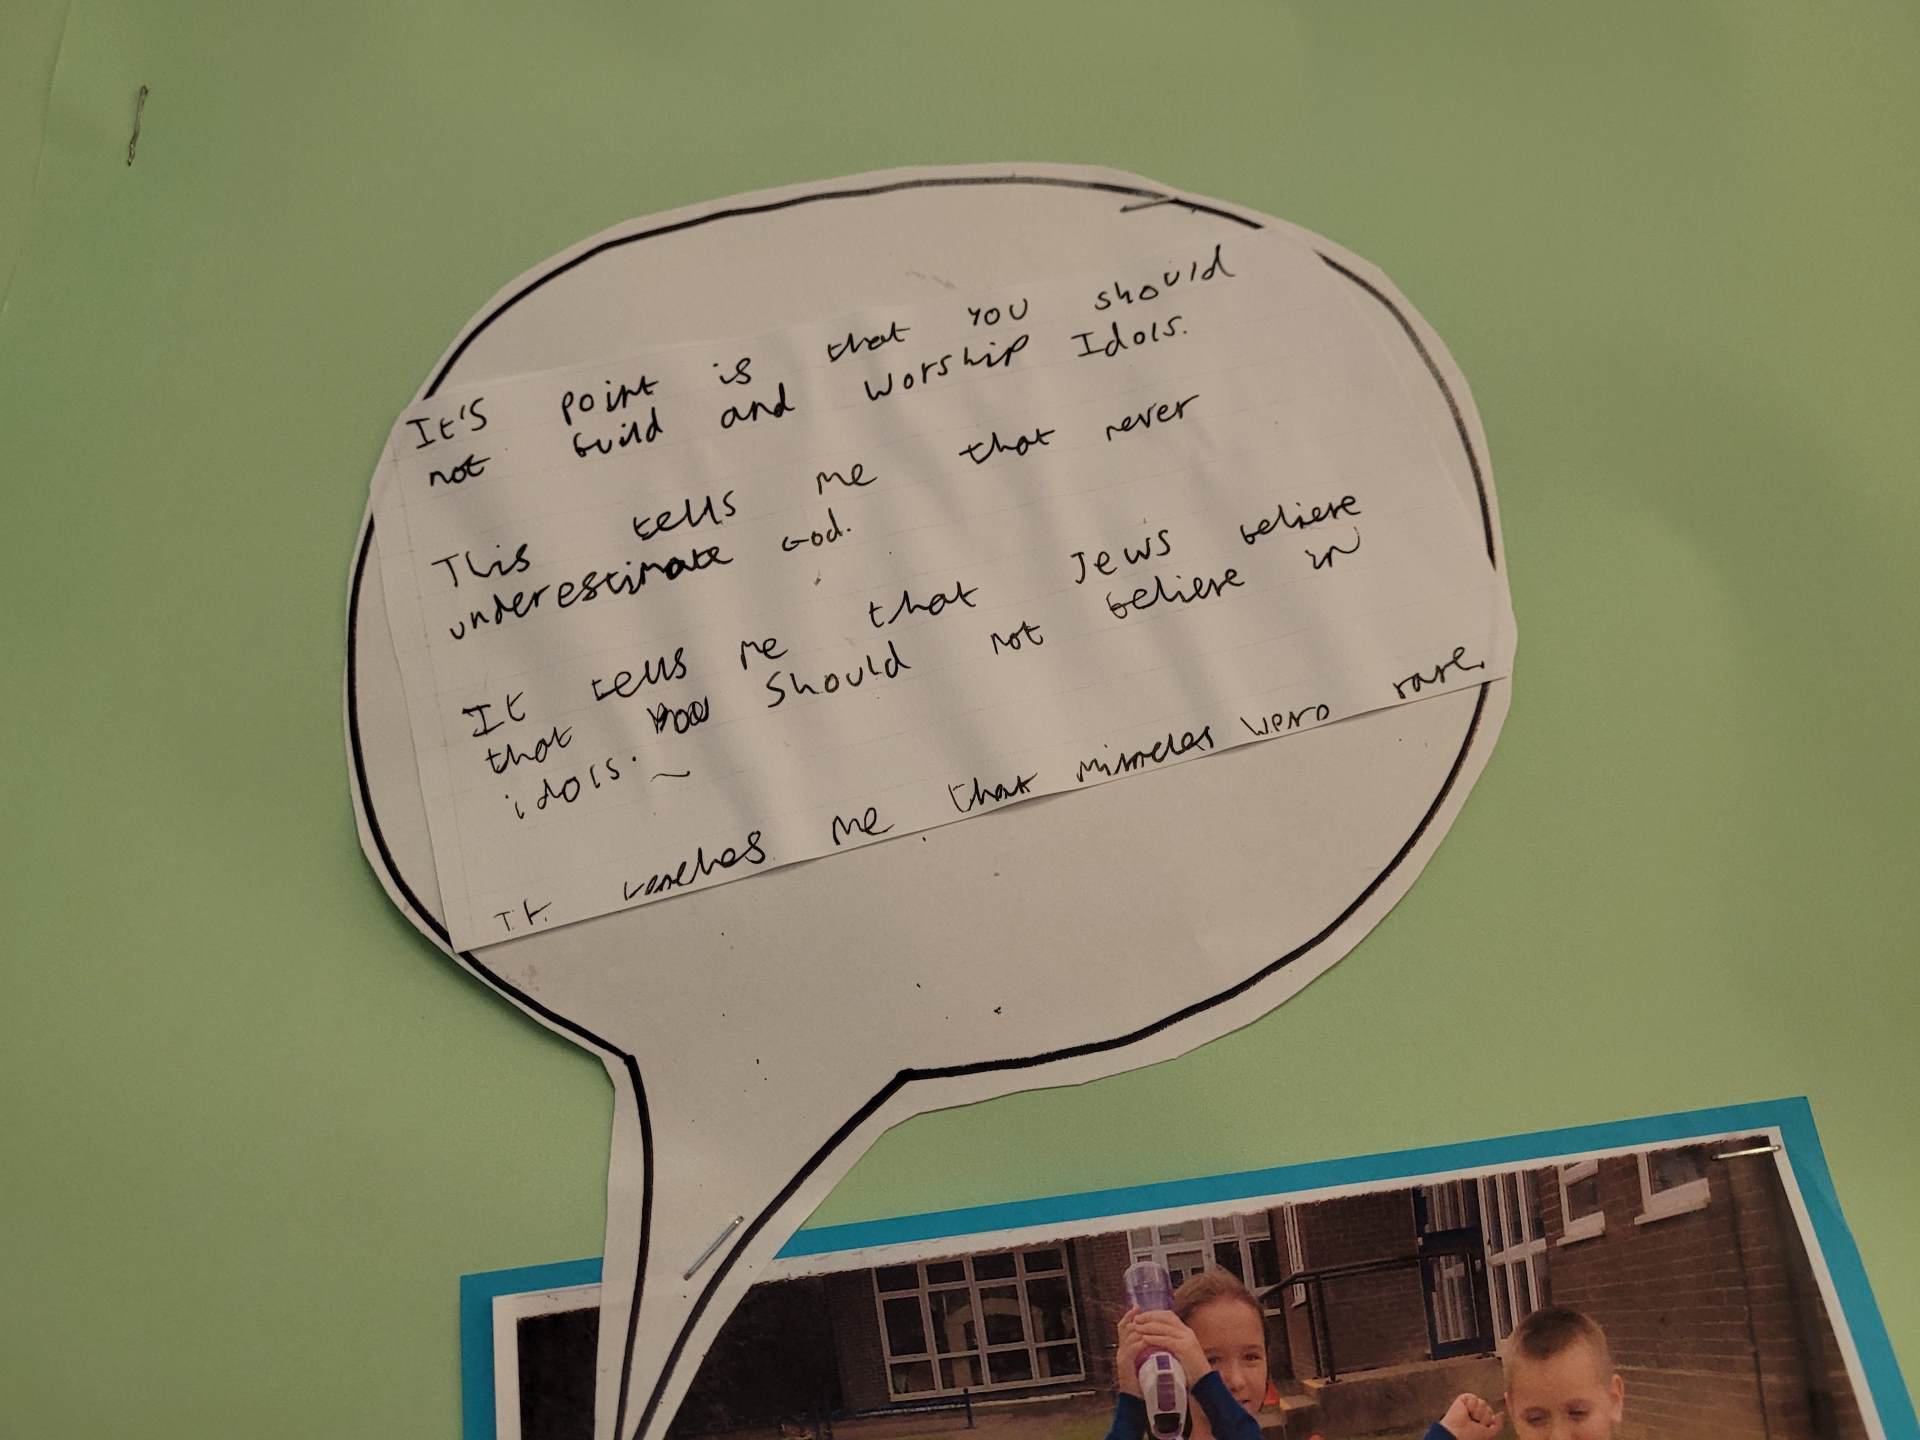 It's point is that you should
not build and worship Idols.
This tells me that never
underestimate God.
It tells me that Jews believe
that you should not believe in
idols.
It teaches me that miracles were rare.